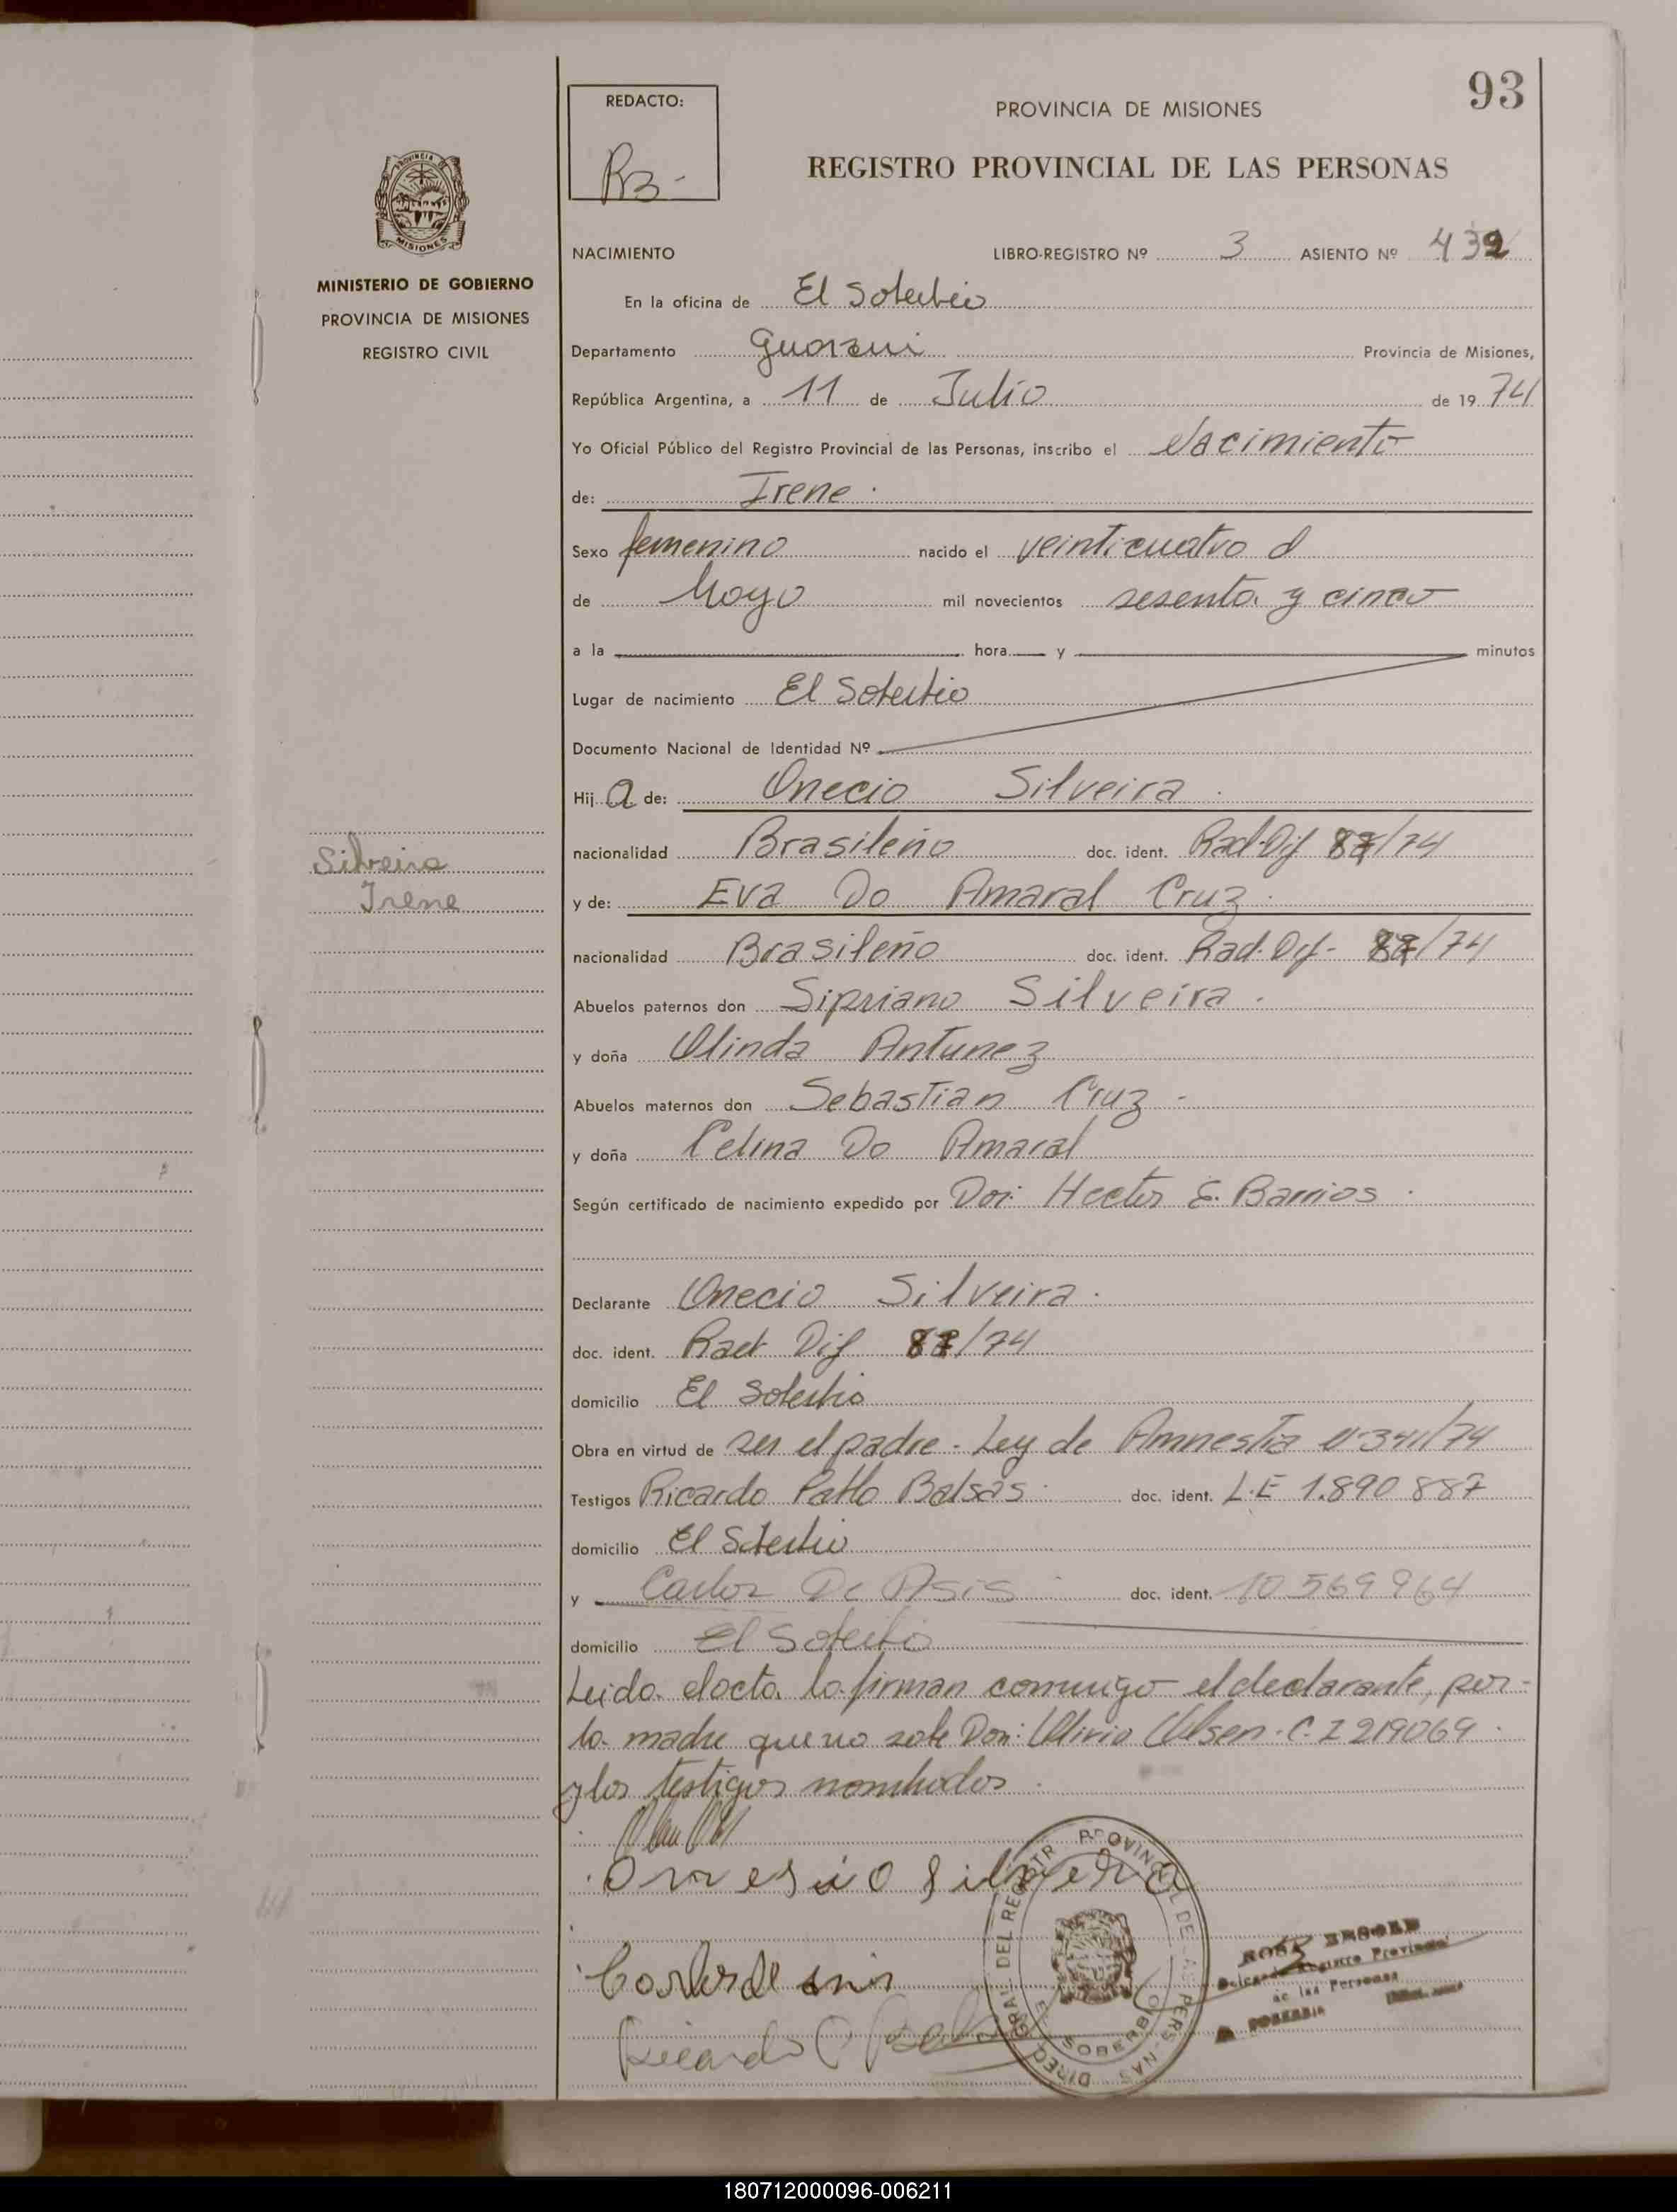 93
REDACTO:
PROVINCIA DE MISIONES
REGISTRO PROVINCIAL DE LAS PERSONAS
PROVINCIA DE
MISIONES
MINISTERIO DE GOBIERNO
PROVINCIA DE MISIONES
REGISTRO CIVIL
Silveira
Irene
NACIMIENTO LIBRO-REGISTRO Nº 3 ASIENTO Nº 432
En la oficina de El Soberbio
Departamento Guarani Provincia de Misiones,
República Argentina, a 11 de Julio de 1974
Yo Oficial Público del Registro Provincial de las Personas, inscribo el Nacimiento
de: Irene.
Sexo femenino nacido el veinticuatro d
de Mayo mil novecientos sesenta y cinco
a la hora y minutos
Lugar de nacimiento El Soberbio
Documento Nacional de Identidad Nº
Hij a de: Onecio Silveira.
nacionalidad Brasileño doc. ident. Rad. Dif /74
y de: Eva Do Amaral Cruz.
nacionalidad Brasileño doc. ident. Rad. Dif- /74
Abuelos paternos don Sipriano Silveira.
y doña Olinda Antunez
Abuelos maternos don Sebastian Cruz-
y doña Celina Do Amaral
Según certificado de nacimiento expedido por Don: Hector E. Barrios.
Declarante Onecio Silveira.
doc. ident. Rad Dif /74
domicilio El Soberbio
Obra en virtud de ser el padre - Ley de Amnestia /74
Testigos Ricardo Pablo Balsas. doc. ident. L.E 1.890.887
domicilio El Soberbio
y Carlos De Asis doc. ident. 10.569.964
domicilio El Soberbio
Leida el acta la firman conmigo el declarante, por-
la madre que no sabe Don: Olivio Olsen. C.I 219069.
y los testigos nombrados.
Onesio Silveira
Carlos de asis
Ricardo P Bal
DIREC. GRAL. DEL REGISTR PROVINCIAL DE LAS PERSONAS
SOBERBIO
Delegado Registro Provincial
de las Personas
SOBERBIO
180712000096-006211